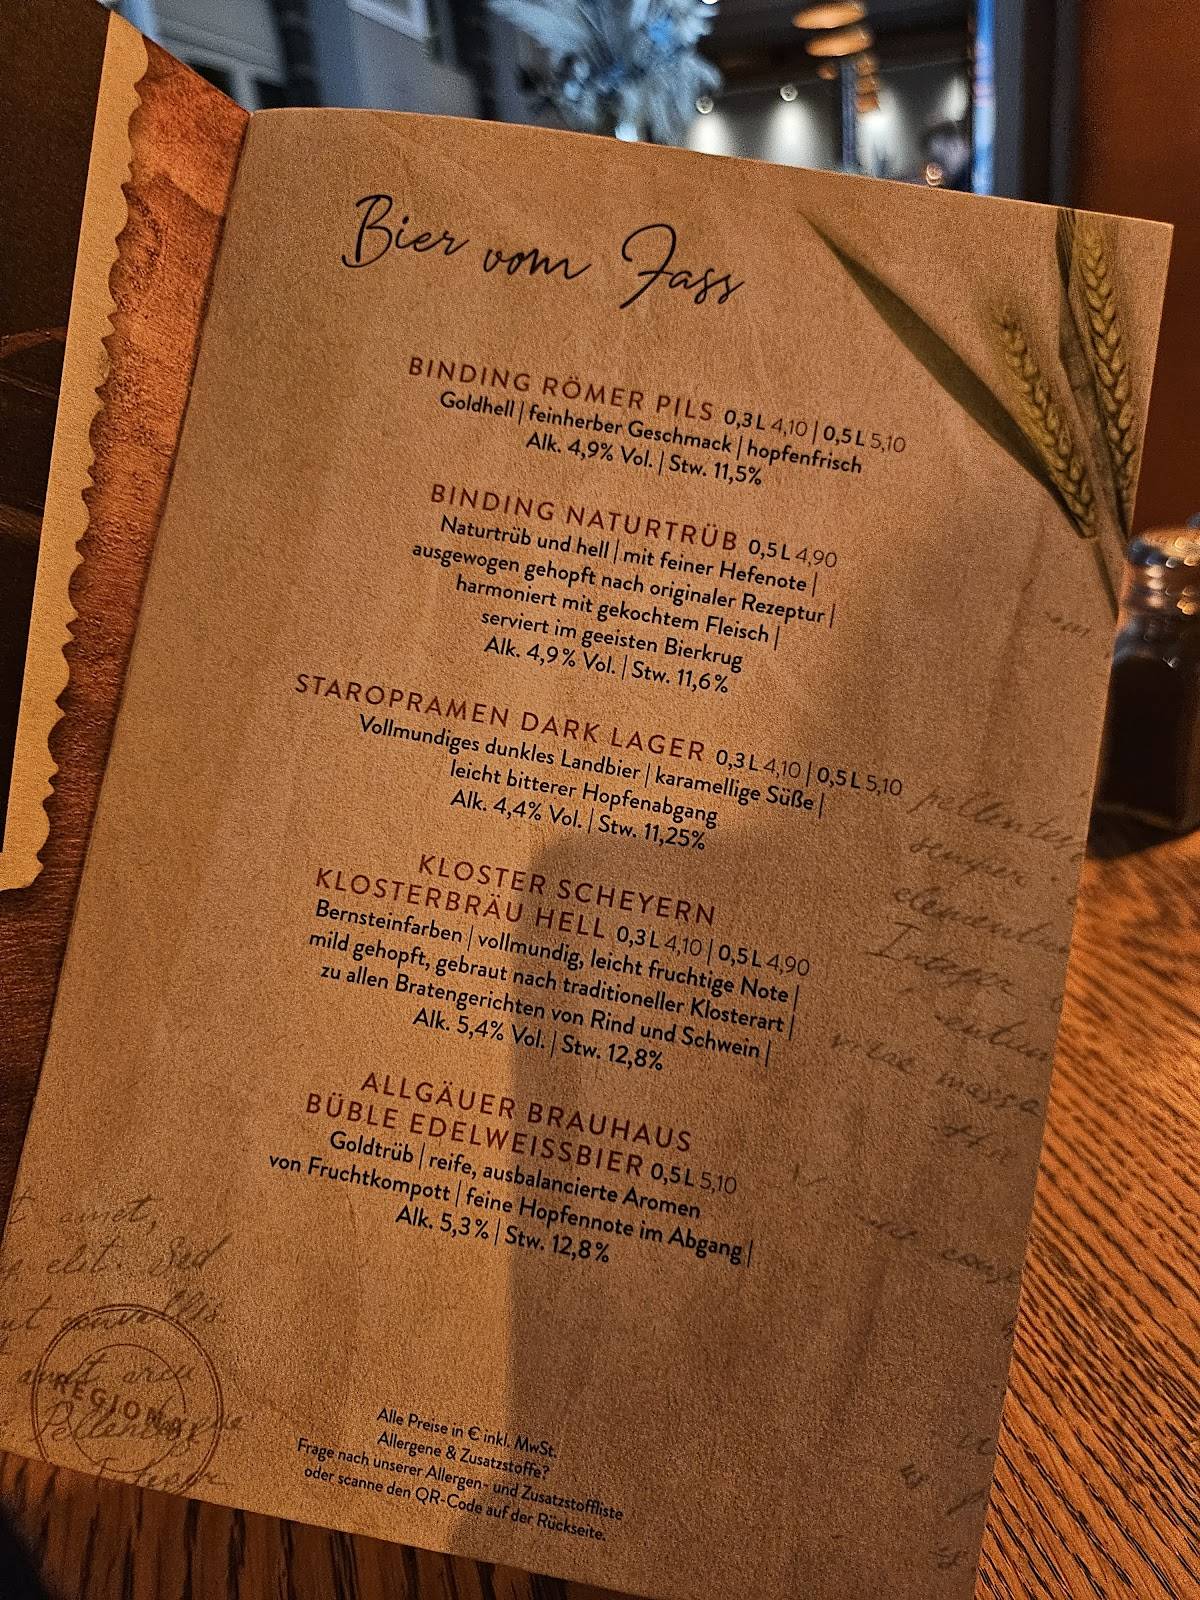 Bier vom Fass
BINDING RÖMER PILS 0,3 L 4,10 | 0,5 L 5,10
Goldhell | feinherber Geschmack | hopfenfrisch
Alk. 4,9% Vol. | Stw. 11,5%
BINDING NATURTRÜB 0,5 L 4,90
Naturtrüb und hell | mit feiner Hefenote |
ausgewogen gehopft nach originaler Rezeptur |
harmoniert mit gekochtem Fleisch |
serviert im geeisten Bierkrug
Alk. 4,9% Vol. | Stw. 11,6%
STAROPRAMEN DARK LAGER 0,3 L 4,10 | 0,5 L 5,10
Vollmundiges dunkles Landbier | karamellige Süße |
leicht bitterer Hopfenabgang
Alk. 4,4% Vol. | Stw. 11,25%
KLOSTER SCHEYERN
KLOSTERBRÄU HELL 0,3 L 4,10 | 0,5 L 4,90
Bernsteinfarben | vollmundig, leicht fruchtige Note |
mild gehopft, gebraut nach traditioneller Klosterart |
zu allen Bratengerichten von Rind und Schwein |
Alk. 5,4% Vol. | Stw. 12,8%
ALLGÄUER BRAUHAUS
BÜBLE EDELWEISSBIER 0,5 L 5,10
Goldtrüb | reife, ausbalancierte Aromen
von Fruchtkompott | feine Hopfennote im Abgang |
Alk. 5,3% | Stw. 12,8%
semper
Integer
vitae massa
amet,
elit. Sed
Alle Preise in € inkl. MwSt.
Allergene & Zusatzstoffe?
Frage nach unserer Allergen- und Zusatzstoffliste
oder scanne den QR-Code auf der Rückseite.